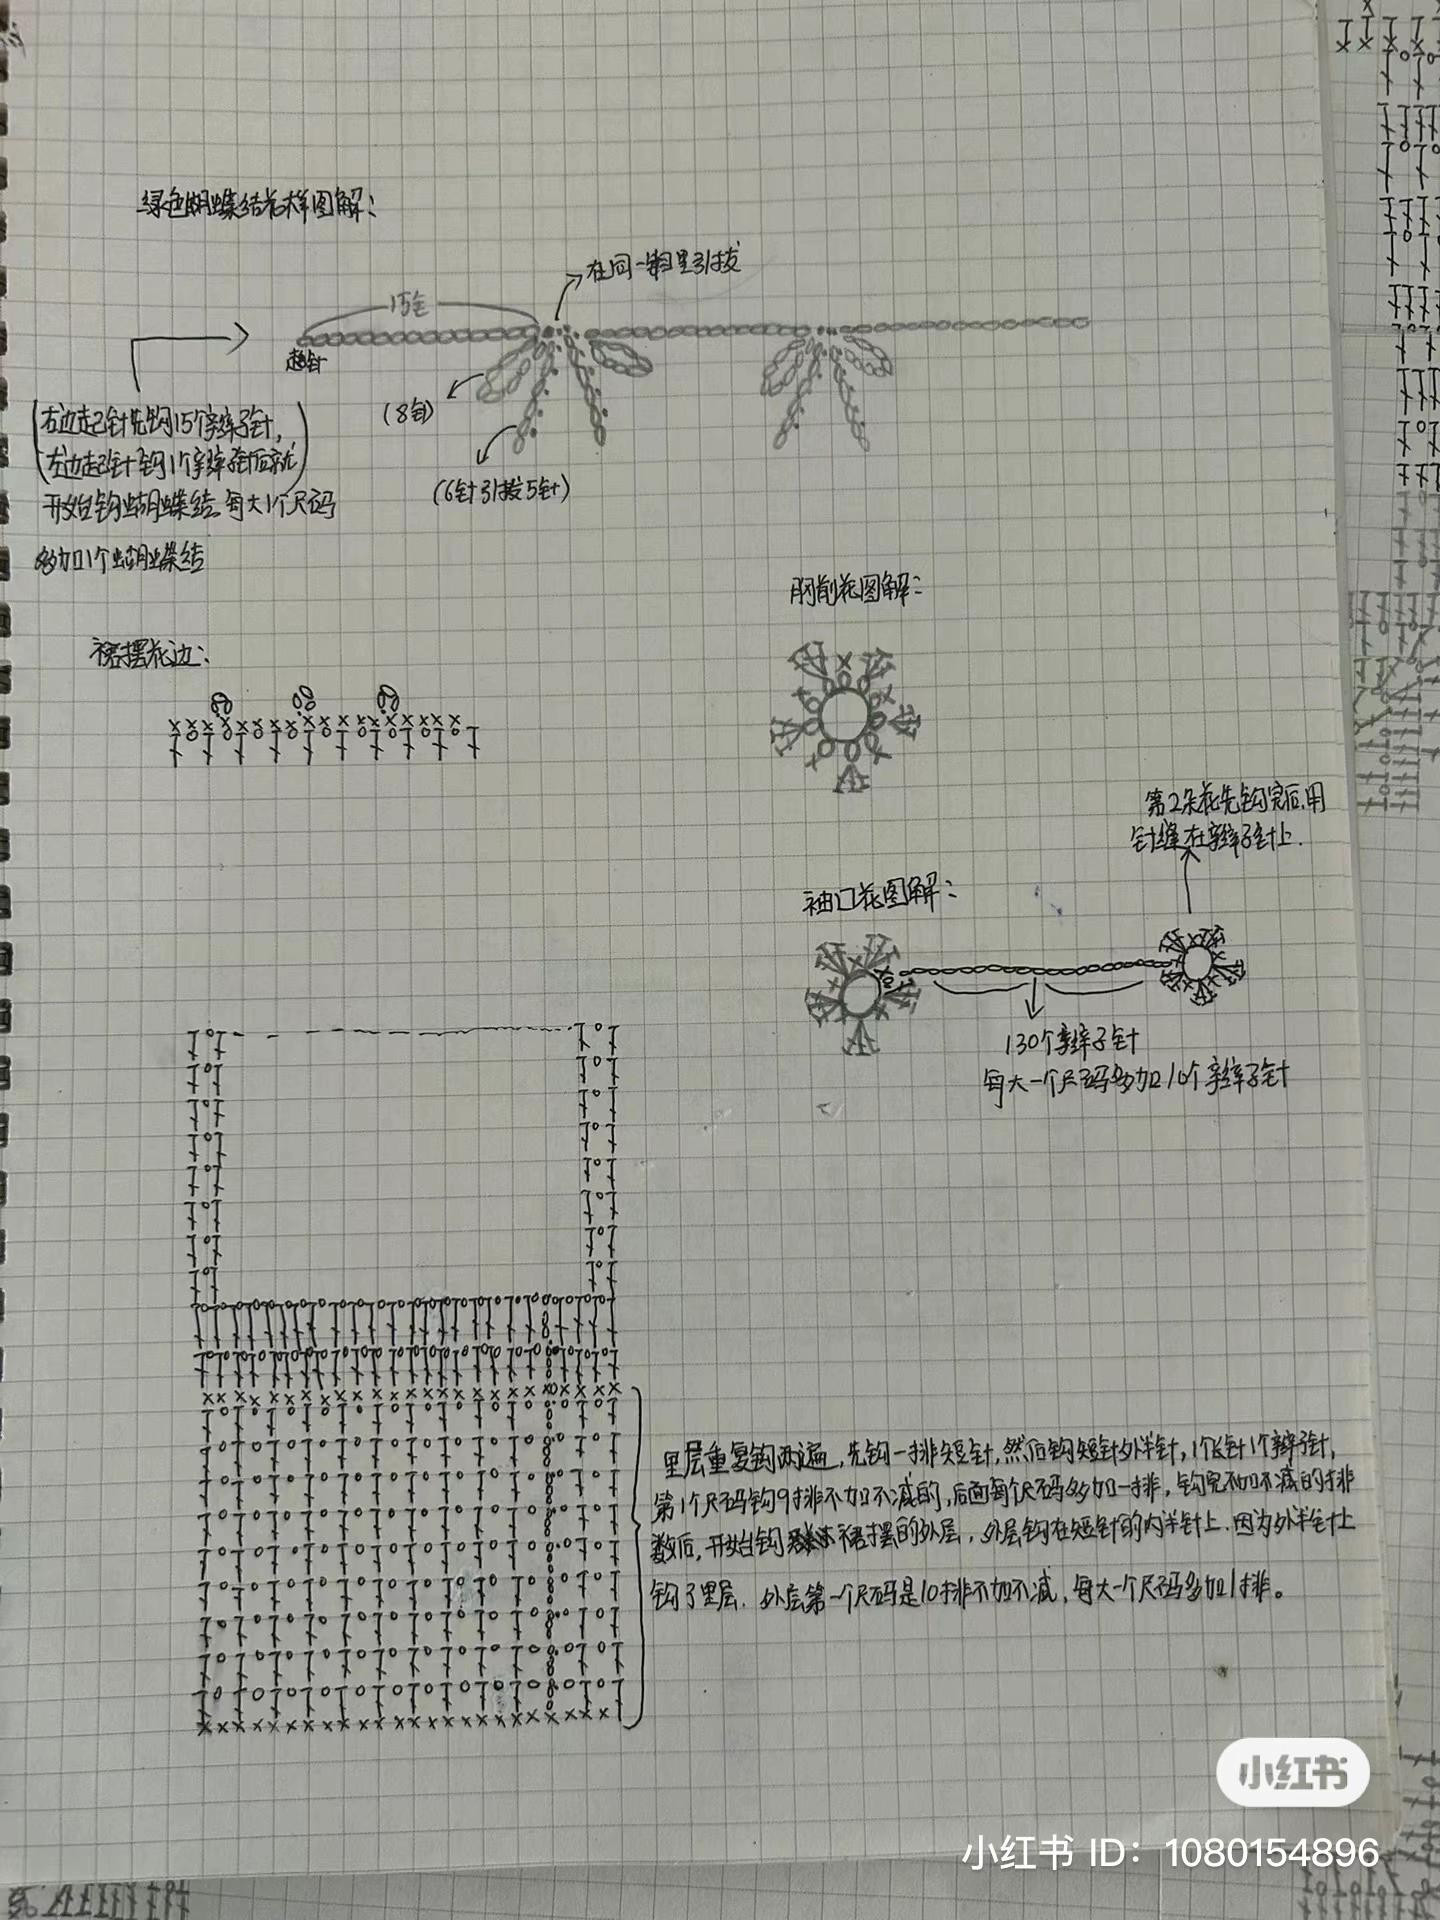 绿色蝴蝶结花样图解：
在同一针目里引拔
15针
起针
(8针)
(6针引拔5针)
右边起针先钩15个辫子针，
左边起针钩1个辫子针后就
开始钩蝴蝶结。每大1个尺码
多加1个蝴蝶结
胸前花图解：
裙摆花边：
第2朵花先钩完后，用
针缝在辫子针上.
袖口花图解：
130个辫子针
每大一个尺码多加10个辫子针
里层重复钩两遍，先钩一排短针，然后钩短针外半针，1个长针1个辫子针，
第1个尺码钩9排不加不减的，后面每个尺码多加一排，钩完不加不减的排
数后，开始钩裙摆的外层，外层钩在短针的内半针上.因为外半针上
钩了里层.外层第一个尺码是10排不加不减，每大一个尺码多加1排。
小红书
小红书 ID：1080154896